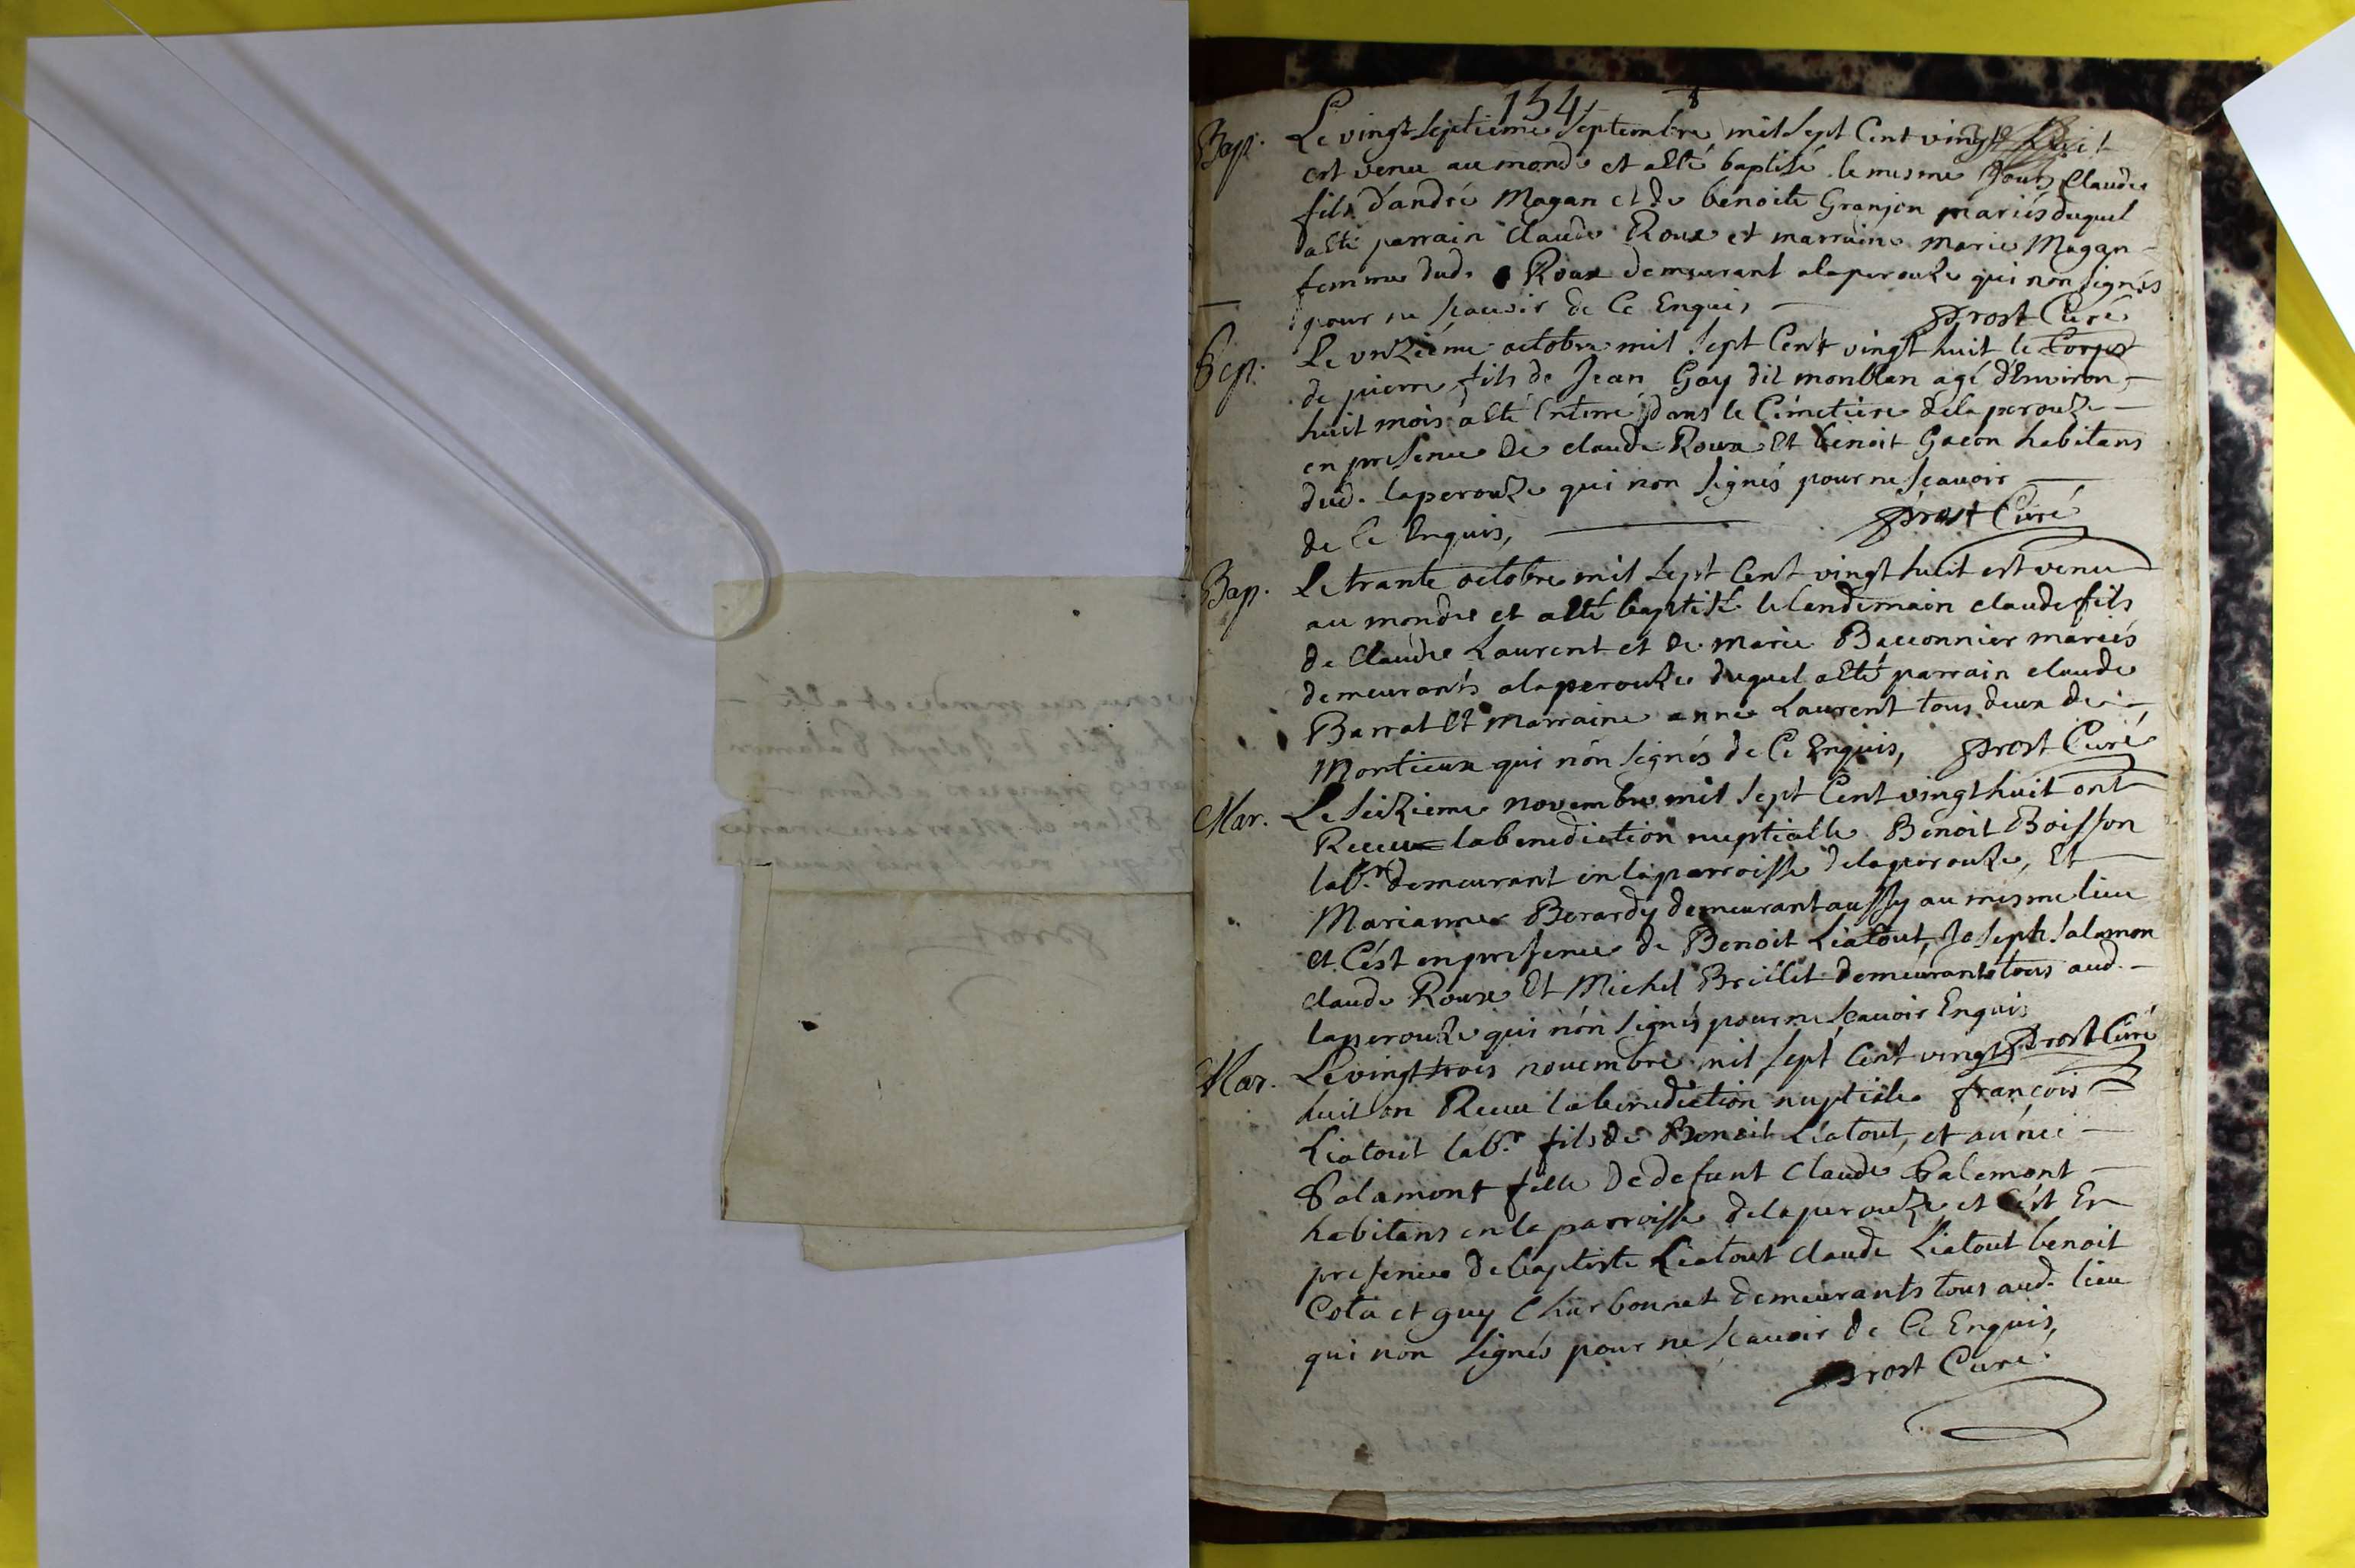 154 8
Bap. Le vingt septieme septembre mil sept Cent vingt huit
est venu au monde et a esté baptisé le mesme jour Claude
fils d'andré Magan et de benoite Granjon mariés duquel
a esté parrain claude Roux et marraine marie Magan
femme dud. Roux demeurant alaperouze qui non signés
pour ne scavoir de Ce Enquis, prost Curé
Sep. Le onzieme octobre mil sept Cent vingt huit le Corps
de pierre fils de Jean Gay dit monblan agé d'Environ
huit mois a esté Enterré dans le Cimetiere delaperouze
en presence de claude Roux Et benoit Gacon habitans
dud. laperouze qui non signés pour ne scavoir
de Ce Enquis, prost Curé
Bap. Le trante octobre mil sept Cent vingt huit est venu
au monde et a esté baptisé le lendemain claude fils
de Claude Laurent et de marie Baconnier mariés
demeurants alaperouze duquel a esté parrain claude
Barrat Et marraine anne Laurent tous deux de
Montieux qui non signés de Ce Enquis, prost Curé
Mar. Le seizieme novembre mil sept Cent vingt huit ont
Receu la benediction nuptialle Benoit Boisson
lab.r demeurant en la parroisse delaperouze, Et
Marianne Berardy demeurant aussy au mesme lieu
et C'est en presence de Benoit Liatout, Joseph Salamon
claude Roux Et Michel Brillet demeurants tous aud.
laperouze qui non signés pour ne scavoir Enquis
prost Curé
Mar. Le vingt trois novembre mil sept Cent vingt
huit on Receu la benediction nuptiale francois
Liatout lab.r fils de Benoit Liatout, et année
Salamont fille de defunt Claude Salemont
habitans en la parroisse delaperouze et C'est En
presence de baptiste Liatout claude Liatout benoit
Cota et guy Charbonnet demeurants tous aud. lieu
qui non signés pour ne scavoir de Ce Enquis,
prost Curé